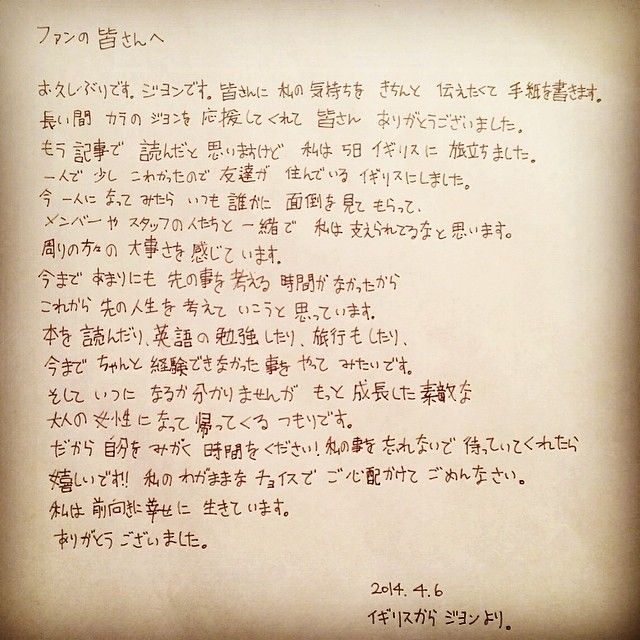 ファンの皆さんへ
お久しぶりです。ジヨンです。皆さんに 私の 気持ちを きちんと 伝えたくて 手紙を書きます。
長い間 カラの ジヨンを 応援してくれて 皆さん ありがとうございました。
もう 記事で 読んだと 思いますけど 私は 5日 イギリスに 旅立ちました。
一人で 少し こわかったので 友達が 住んでいる イギリスにしました。
今 一人に なって みたら いつも 誰かに 面倒を 見て もらって、
メンバーや スタッフの人たちと 一緒で 私は 支えられてるなと 思います。
周りの方々の 大事さを 感じて います。
今まで あまりにも 先の事を 考える 時間が なかったから
これから 先の 人生を 考えて いこうと 思っています。
本を 読んだり、英語の 勉強したり、旅行も したり、
今まで ちゃんと 経験できなかった 事を やって みたいです。
そして いつに なるか 分かりませんが もっと 成長した 素敵な
大人の 女性に なって 帰ってくる つもりです。
だから 自分を みがく 時間を ください!私の事を 忘れないで 待っていてくれたら
嬉しいです!! 私の わがままな チョイスで ご心配かけて ごめんなさい。
私は 前向きに 幸せに 生きています。
ありがとうございました。
2014. 4. 6
イギリスから ジヨンより。